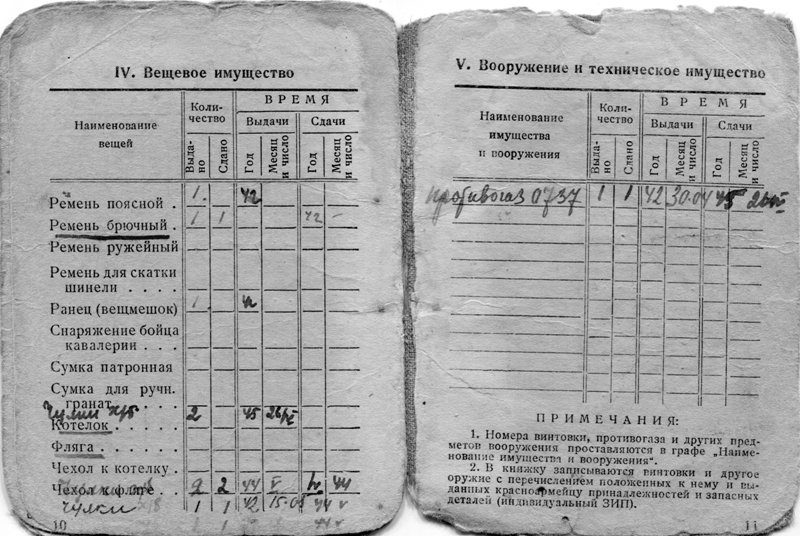 IV. Вещевое имущество
Наименование вещей
Коли-
чество
ВРЕМЯ
Выдачи
Сдачи
Выда-
но
Сдано
Год
Месяц
и число
Год
Месяц
и число
Ремень поясной . 1. 42
Ремень брючный . 1 1 42 –
Ремень ружейный
Ремень для скатки
шинели . . . .
Ранец (вещмешок) 1. 42
Снаряжение бойца
кавалерии . . .
Сумка патронная
Сумка для ручн.
гранат . . . . .
Чулки х/б 2 45 26/IV
Котелок . . . . .
Фляга . . . . .
Чехол к котелку .
Чехол к фляге . . 2 2 44 V 44
чулки 1 1 42 15.05 44 V
10
V. Вооружение и техническое имущество
Наименование
имущества
и вооружения
Коли-
чество
ВРЕМЯ
Выдачи
Сдачи
Выда-
но
Сдано
Год
Месяц
и число
Год
Месяц
и число
противогаз 0737 1 1 42 30.04 45
ПРИМЕЧАНИЯ:
1. Номера винтовки, противогаза и других пред-
метов вооружения проставляются в графе „Наиме-
нование имущества и вооружения“.
2. В книжку записываются винтовки и другое
оружие с перечислением положенных к нему и вы-
данных красноармейцу принадлежностей и запасных
деталей (индивидуальный ЗИП).
11